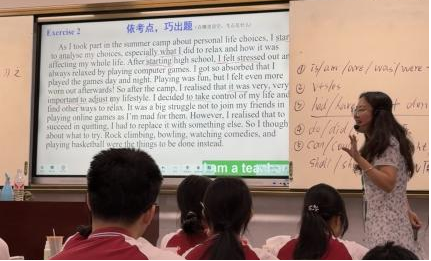 Exercise 2
依考点，巧出题
As I took part in the summer camp about personal life choices, I star
to analyse my choices, especially what I did to relax and how it was
affecting my whole life. After starting high school, I felt stressed out an
always relaxed by playing computer games. I got so absorbed that I
played the games day and night. Playing was fun, but I felt even more
worn out afterwards! So after the camp, I realised that it was very, very
important to adjust my lifestyle. I decided to take control of my life and
find other ways to relax. It was a big struggle not to join my friends in
playing online games as I'm mad for them. However, I realised that to
succeed in quitting, I had to replace it with something else. So I though
about what to try. Rock climbing, bowling, watching comedies, and
playing basketball were the things to be done instead.
I am a teacher
① is/am/are/was/were
②
③ had/have
④ do/did
⑤ can/
shall